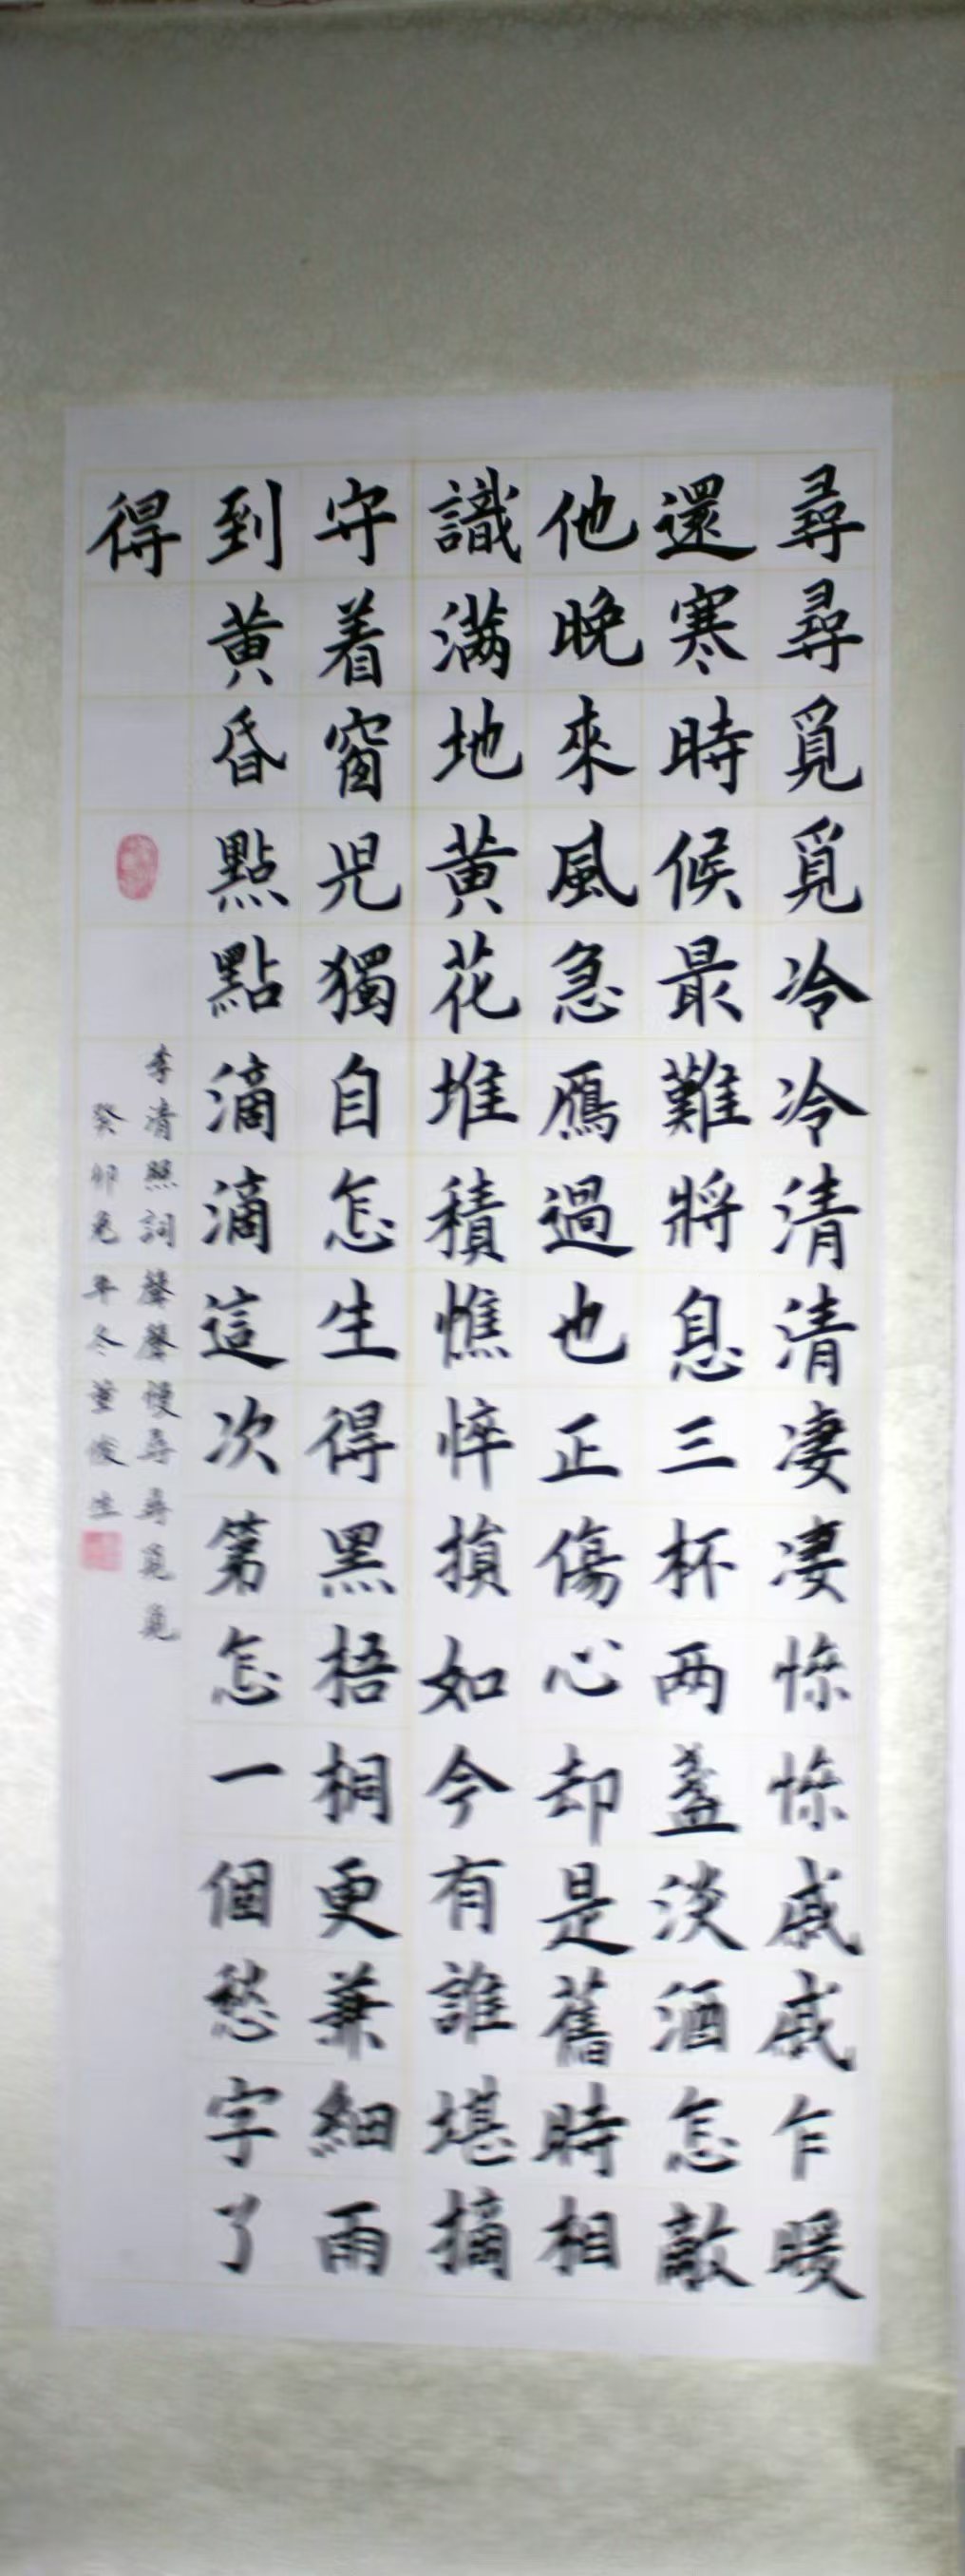 尋尋覓覓冷冷清清凄凄惨惨戚戚乍暖
還寒時候最難將息三杯两盞淡酒怎敵
他晚來風急鴈過也正傷心却是舊時相
識满地黄花堆積憔悴損如今有誰堪摘
守着窗兒獨自怎生得黑梧桐更兼細雨
到黄昏點點滴滴這次第怎一個愁字了
得
李清照詞聲聲慢尋尋覓覓
癸卯兔年冬董俊生